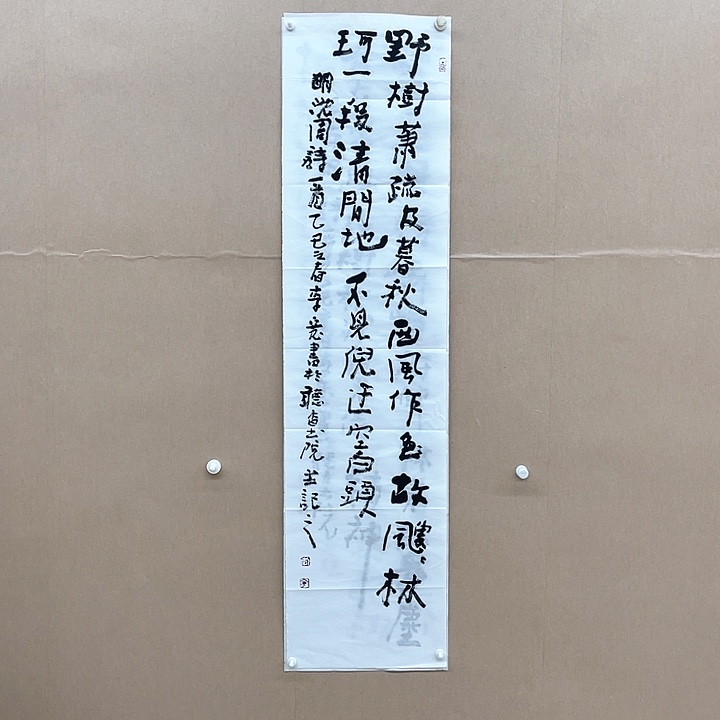 野樹蕭疏及暮秋西風作意故颼〻林
珂一段清閒地不見倪迂空白頭
明沈周詩一首乙巳之春李書於聽貞書院並記之